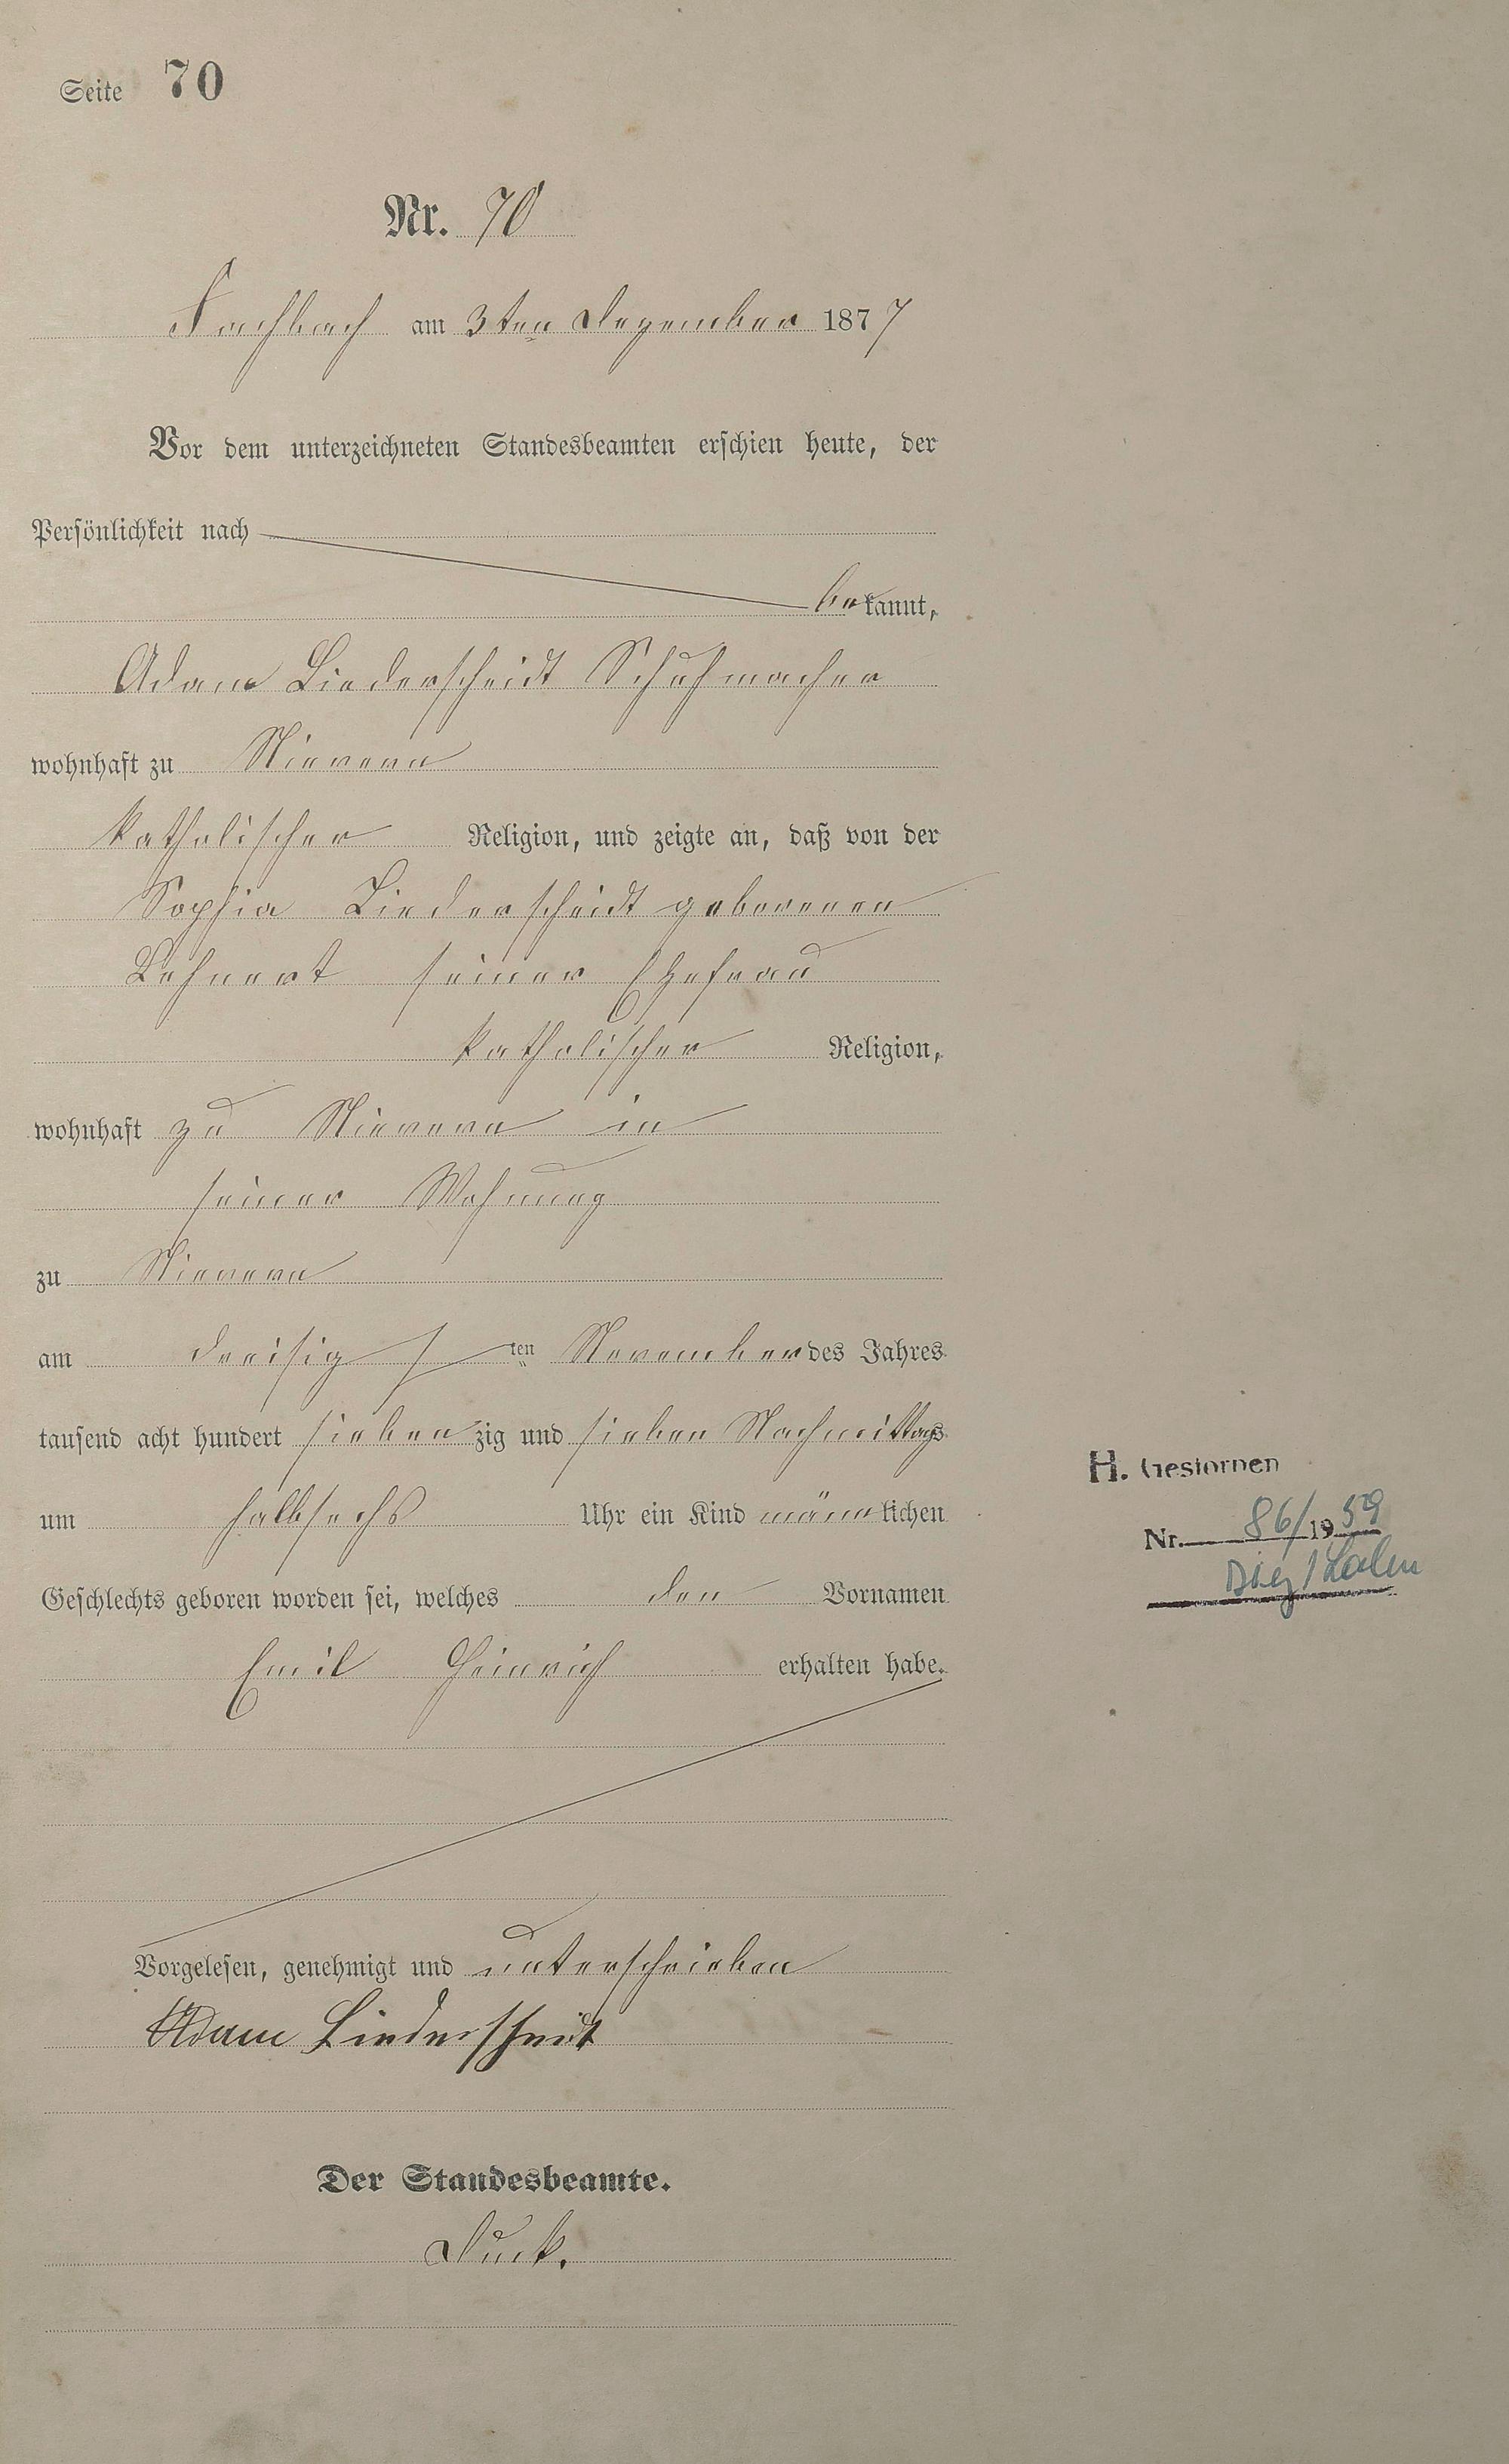 Seite 70
Nr. 70
Fachbach am 3ten Dezember 1877
Vor dem unterzeichneten Standesbeamten erschien heute, der
Persönlichkeit nach
bekannt,
Adam Liederscheidt Schuhmacher
wohnhaft zu Nievern
katholischer Religion, und zeigte an, daß von der
Sophia Liederscheidt geborenen
Lehnert seiner Ehefrau
katholischer Religion,
wohnhaft zu Nievern in
seiner Wohnung
zu Nievern
am dreisig ten November des Jahres
tausend acht hundert sieben zig und sieben Nachmittags
um halbsechs Uhr ein Kind männlichen
Geschlechts geboren worden sei, welches den Vornamen
Emil Heinrich erhalten habe.
H. Gestorben
Nr. 86/1959
Diez/Lahn
Vorgelesen, genehmigt und unterschrieben
Adam Liederscheidt
Der Standesbeamte.